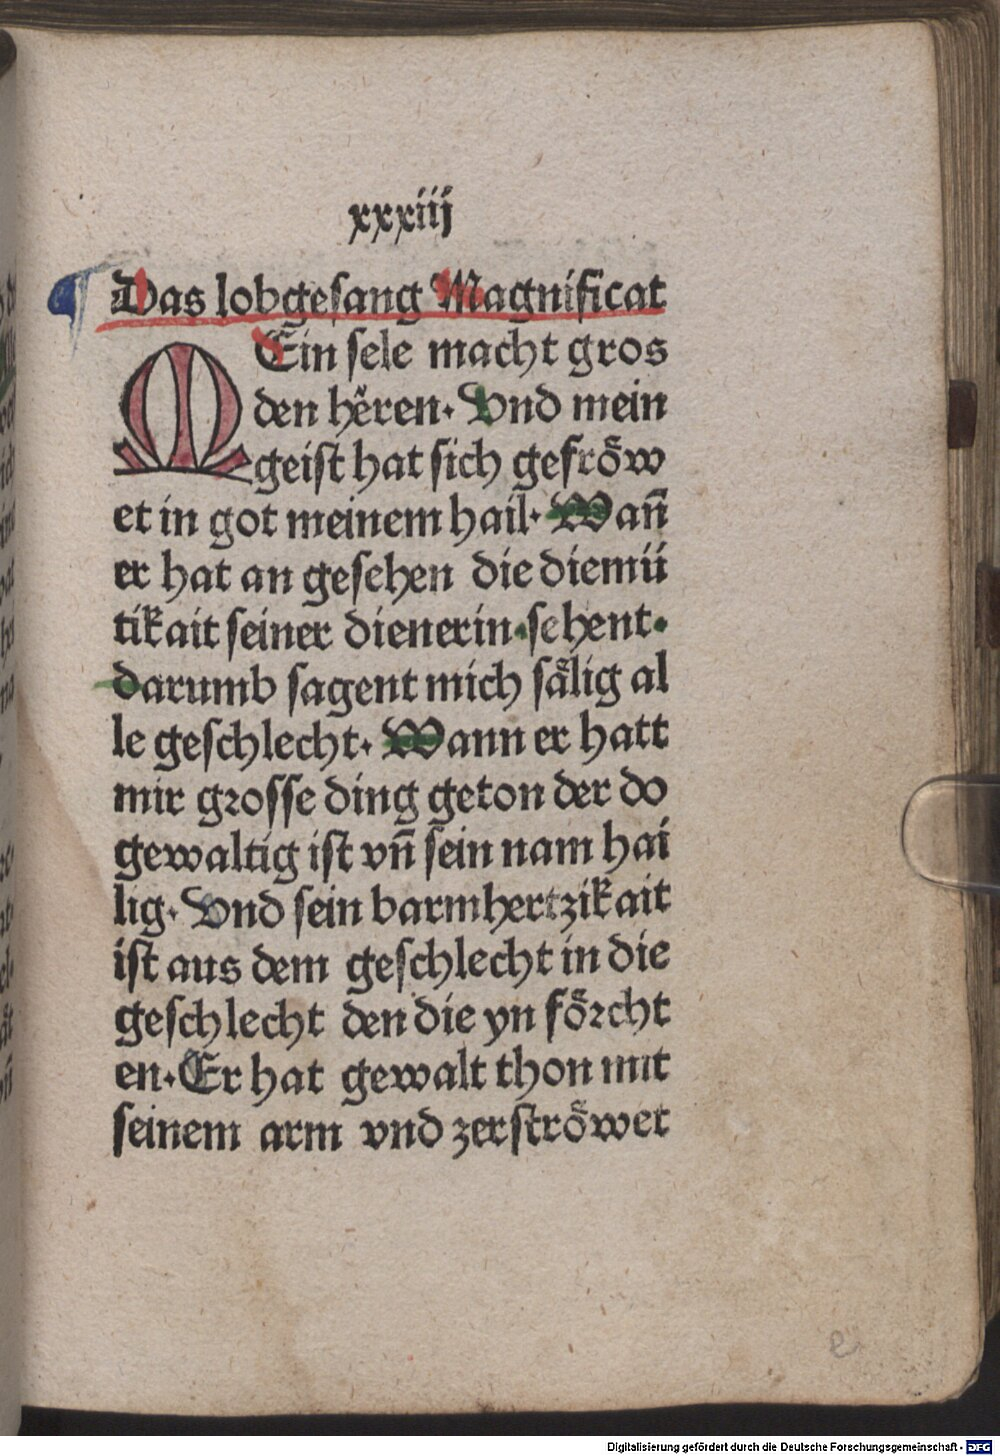 xxxiij
¶ Das lobgesang Magnificat
MEin sele macht gros
den hëren. Vnd mein
geist hat sich gefröw
et in got meinem hail. Wañ
er hat an gesehen die diemü
tikait seiner dienerin. sehent.
darumb sagent mich sälig al
le geschlecht. Wann er hatt
mir grosse ding geton der do
gewaltig ist vñ sein nam hai
lig. Vnd sein barmhertzikait
ist aus dem geschlecht in die
geschlecht den die yn förcht
en. Er hat gewalt thon mit
seinem arm vnd zerströwet
e
Digitalisierung gefördert durch die Deutsche Forschungsgemeinschaft - DFG